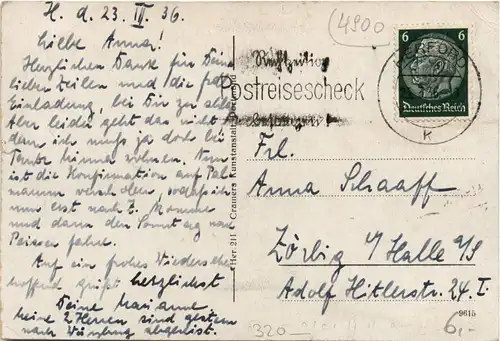 H. d. 23. III. 36.
Liebe Anna!
Herzlichen Dank für Deine
lieben Zeilen und die frdl.
Einladung, bei Dir zu
Aber leider geht das nicht
denn ich muß ja doch bei
Tante wohnen. Nun
ist die Konfirmation auf Pal-
marum verschoben, sodaß ich
nun erst nach Z. komme
und dann den Sonntag nach
fahre.
Auf ein frohes Wiedersehen
hoffend grüßt herzlichst
Deine Marianne
Meine 2 Herren sind gestern
nach Würzburg abgereist.
Her. 211 Cramers Kunstanstalt, Dortmund
4900
Rechtzeitig
Postreisescheck
besorgen!
HERFORD
K
6 6
Deutsches Reich
Frl.
Anna Schaaff
Zörbig b/ Halle a/S
Adolf Hitlerstr. 24. I.
9615
320
6,-